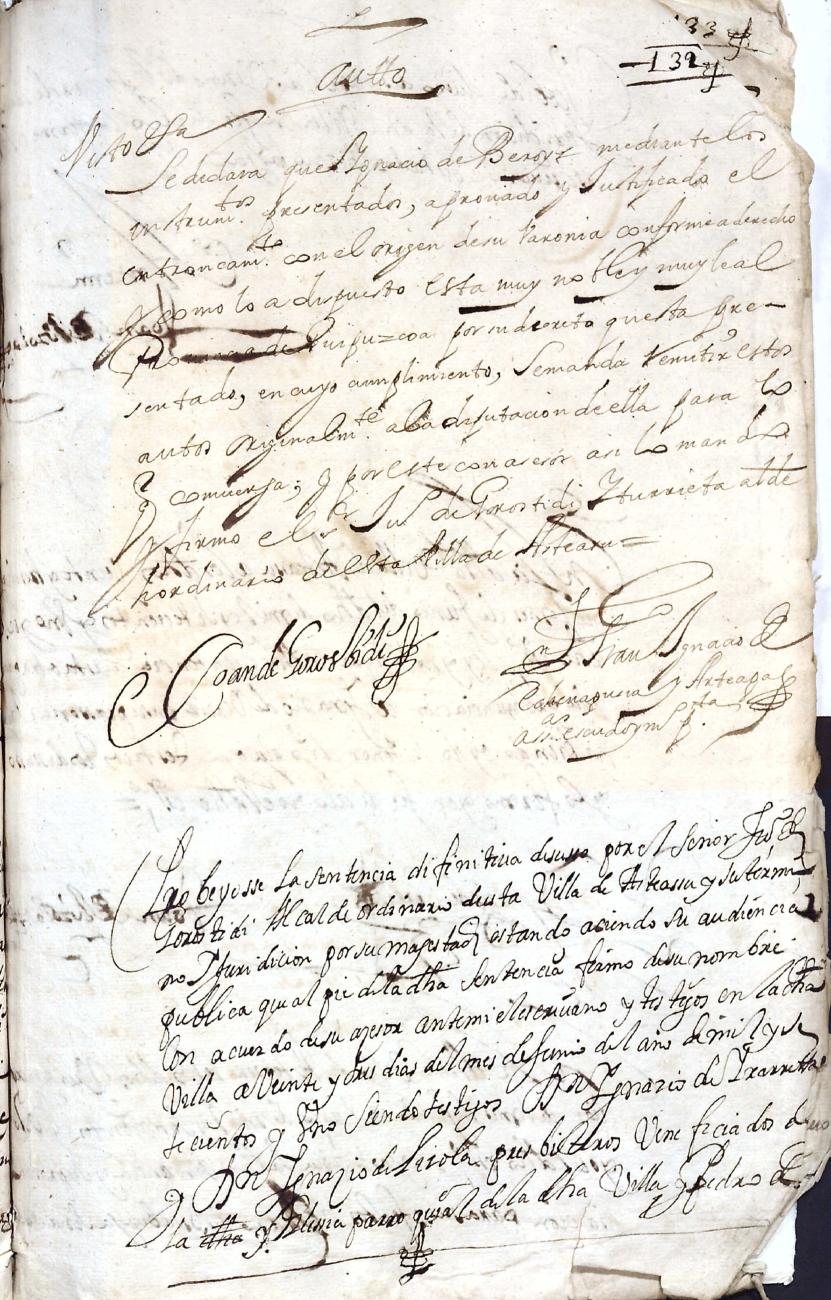 133
132
autto
Visto &a
Se declara que Ygnacio de Beroiz mediante los
instrumtos presentados, a provado y Justificado el
entroncamto con el origen de su Varonia conforme a derecho
y como lo a dispuesto Esta muy noble y muy leal
Provincia de Guipuzcoa por su decreto questa pre-
sentado, en cuyo cumplimiento, Se manda remitir estos
autos originalmte a la diputacion de ella para lo
q convenga; y por este con asesor asi lo mando
y firmo el Sr Jun de Gorostidi Yturrieta alcde
hordinario de esta Villa de Asteasu=
Joan de Gorostidi
Dn Fran Ignacio de
y Arteaga
Pro beyosse La sentencia difinitiva de suso por el Señor Jun de
Gorostidi Alcalde ordinario desta Villa de Asteassu y su termi
no y Juridicion por su magestad estando aciendo su audiencia
publica qual pie de la dha sentencia firmo de su nombre
Con acuerdo de su asesor ante mi el escrivano y testigos en la dha
Villa a Veinte y tres dias del mes de Junio del año de mil y se
tecientos y Uno Siendo testigos Dn Ignacio de Yrarreta
y Dn Ignazio de Lizola presbiteros Vene ficiados de
la dha Yglesia parroquial de la dha Villa y Pedro de